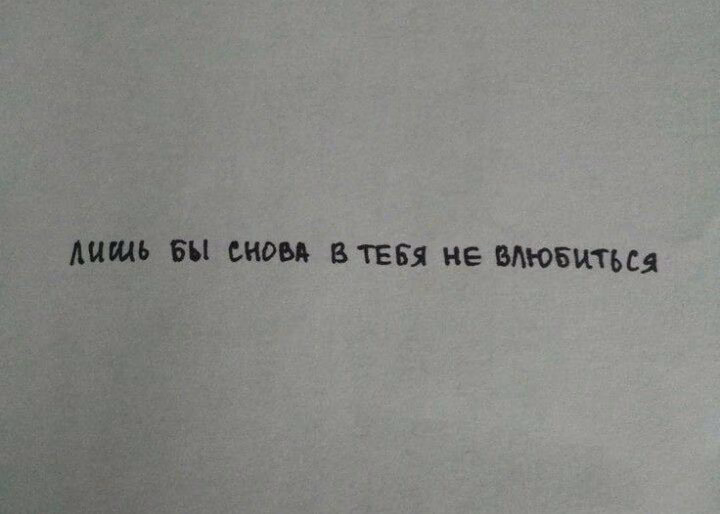 лишь бы снова в тебя не влюбиться